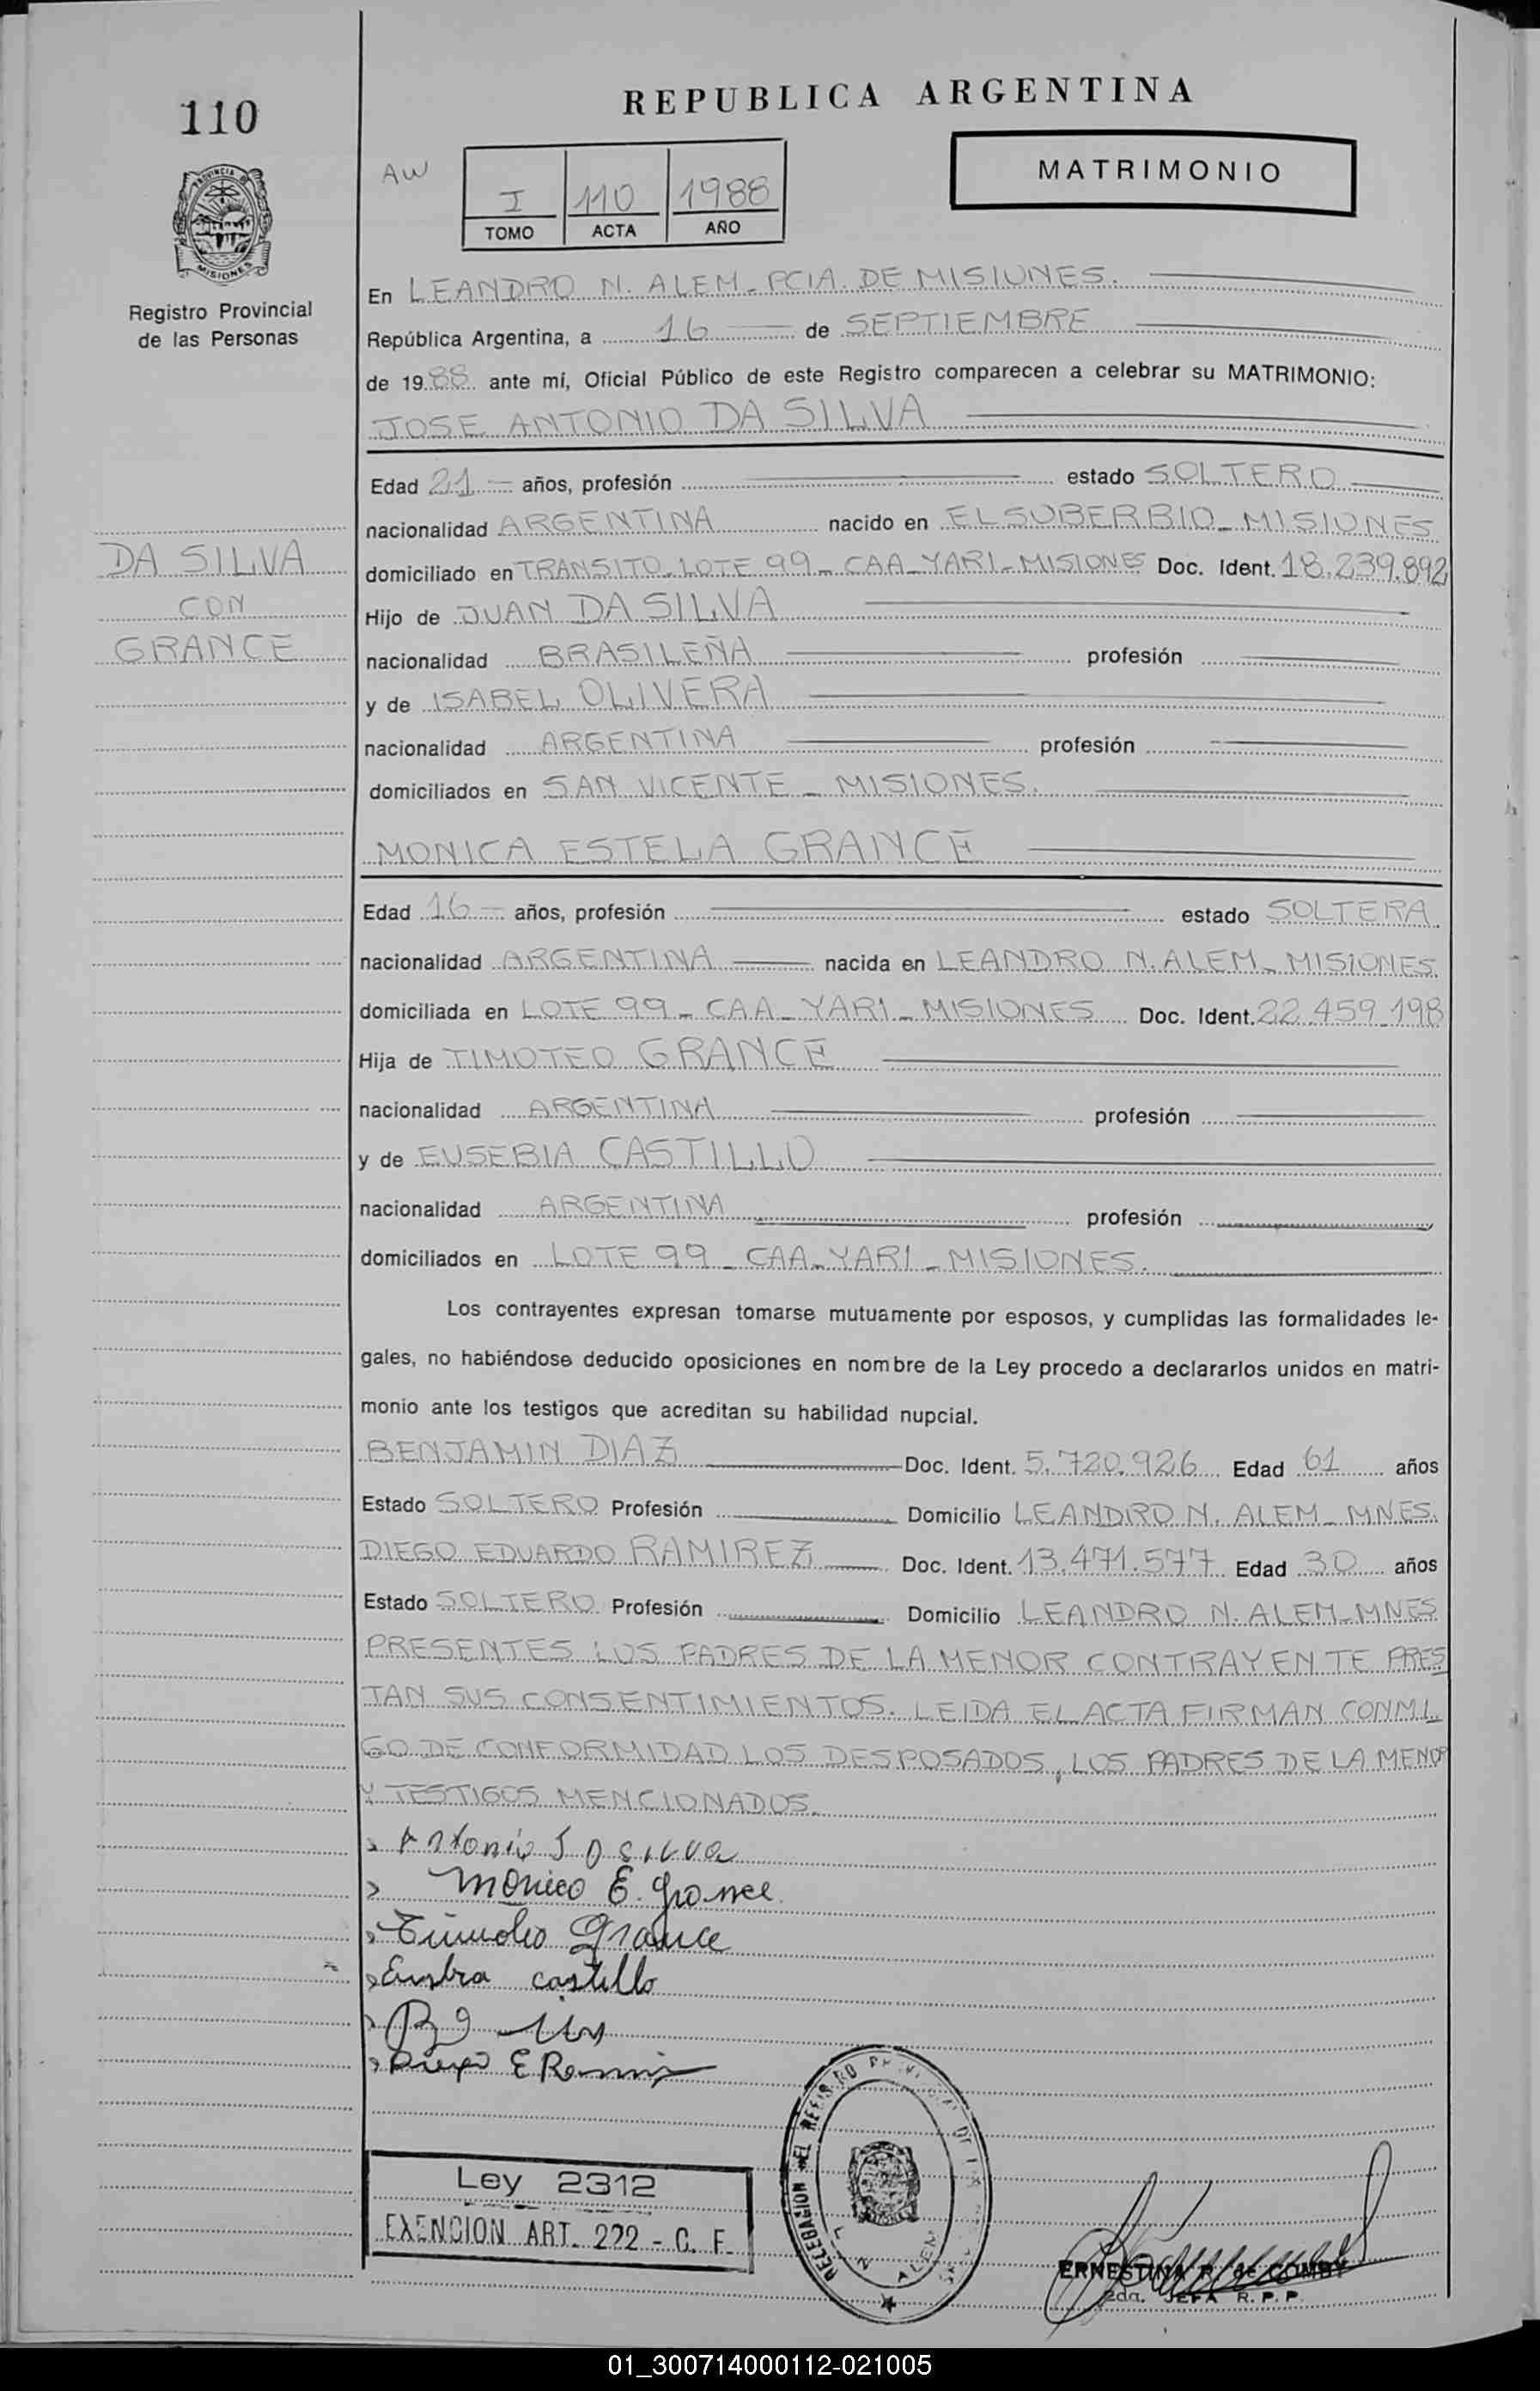 110
REPUBLICA ARGENTINA
MATRIMONIO
AW
I 110 1988
TOMO ACTA AÑO
PROVINCIA DE
MISIONES
Registro Provincial
de las Personas
En LEANDRO N. ALEM - PCIA. DE MISIONES.
República Argentina, a 16 de SEPTIEMBRE
de 1988 ante mí, Oficial Público de este Registro comparecen a celebrar su MATRIMONIO:
JOSE ANTONIO DA SILVA
Edad 21 años, profesión estado SOLTERO
nacionalidad ARGENTINA nacido en EL SOBERBIO - MISIONES
DA SILVA
CON
GRANCE
domiciliado en TRANSITO - LOTE 99 - CAA - YARI - MISIONES Doc. Ident. 18.239.892
Hijo de JUAN DA SILVA
nacionalidad BRASILEÑA profesión
y de ISABEL OLIVERA
nacionalidad ARGENTINA profesión
domiciliados en SAN VICENTE - MISIONES.
MONICA ESTELA GRANCE
Edad 16 años, profesión estado SOLTERA
nacionalidad ARGENTINA nacida en LEANDRO N. ALEM - MISIONES
domiciliada en LOTE 99 - CAA - YARI - MISIONES Doc. Ident. 22.459.198
Hija de TIMOTEO GRANCE
nacionalidad ARGENTINA profesión
y de EUSEBIA CASTILLO
nacionalidad ARGENTINA profesión
domiciliados en LOTE 99 - CAA - YARI - MISIONES.
Los contrayentes expresan tomarse mutuamente por esposos, y cumplidas las formalidades le-
gales, no habiéndose deducido oposiciones en nombre de la Ley procedo a declararlos unidos en matri-
monio ante los testigos que acreditan su habilidad nupcial.
BENJAMIN DIAZ Doc. Ident. 5.720.926 Edad 61 años
Estado SOLTERO Profesión Domicilio LEANDRO N. ALEM - MNES.
DIEGO EDUARDO RAMIREZ Doc. Ident. 13.471.577 Edad 30 años
Estado SOLTERO Profesión Domicilio LEANDRO N. ALEM - MNES
PRESENTES LOS PADRES DE LA MENOR CONTRAYENTE PRES
TAN SUS CONSENTIMIENTOS. LEIDA EL ACTA FIRMAN CONMI
GO DE CONFORMIDAD LOS DESPOSADOS, LOS PADRES DE LA MENOR
Y TESTIGOS MENCIONADOS.
Antonio J D Silva
Monica E. Grance
Timoteo Grance
Eusbia castillo
Diego E Ramirez
Ley 2312
EXENCION ART. 222 - C. F.
DELEGACION DEL REGISTRO PROVINCIAL DE LAS
L. N. ALEM
ERNESTINA R. de COMBY
2da. JEFA R. P. P.
01_300714000112-021005